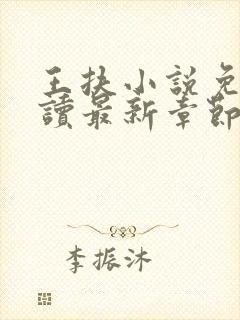 王扶小說免
讀最新章節
李振沐